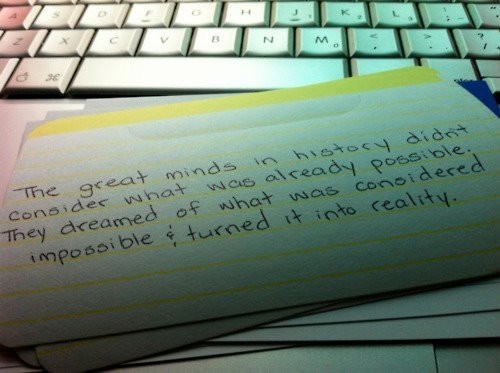 A S D F G H J K L
Z X C V B N M < > ?
⌘
The great minds in history didn't
consider what was already possible.
They dreamed of what was considered
impossible & turned it into reality.